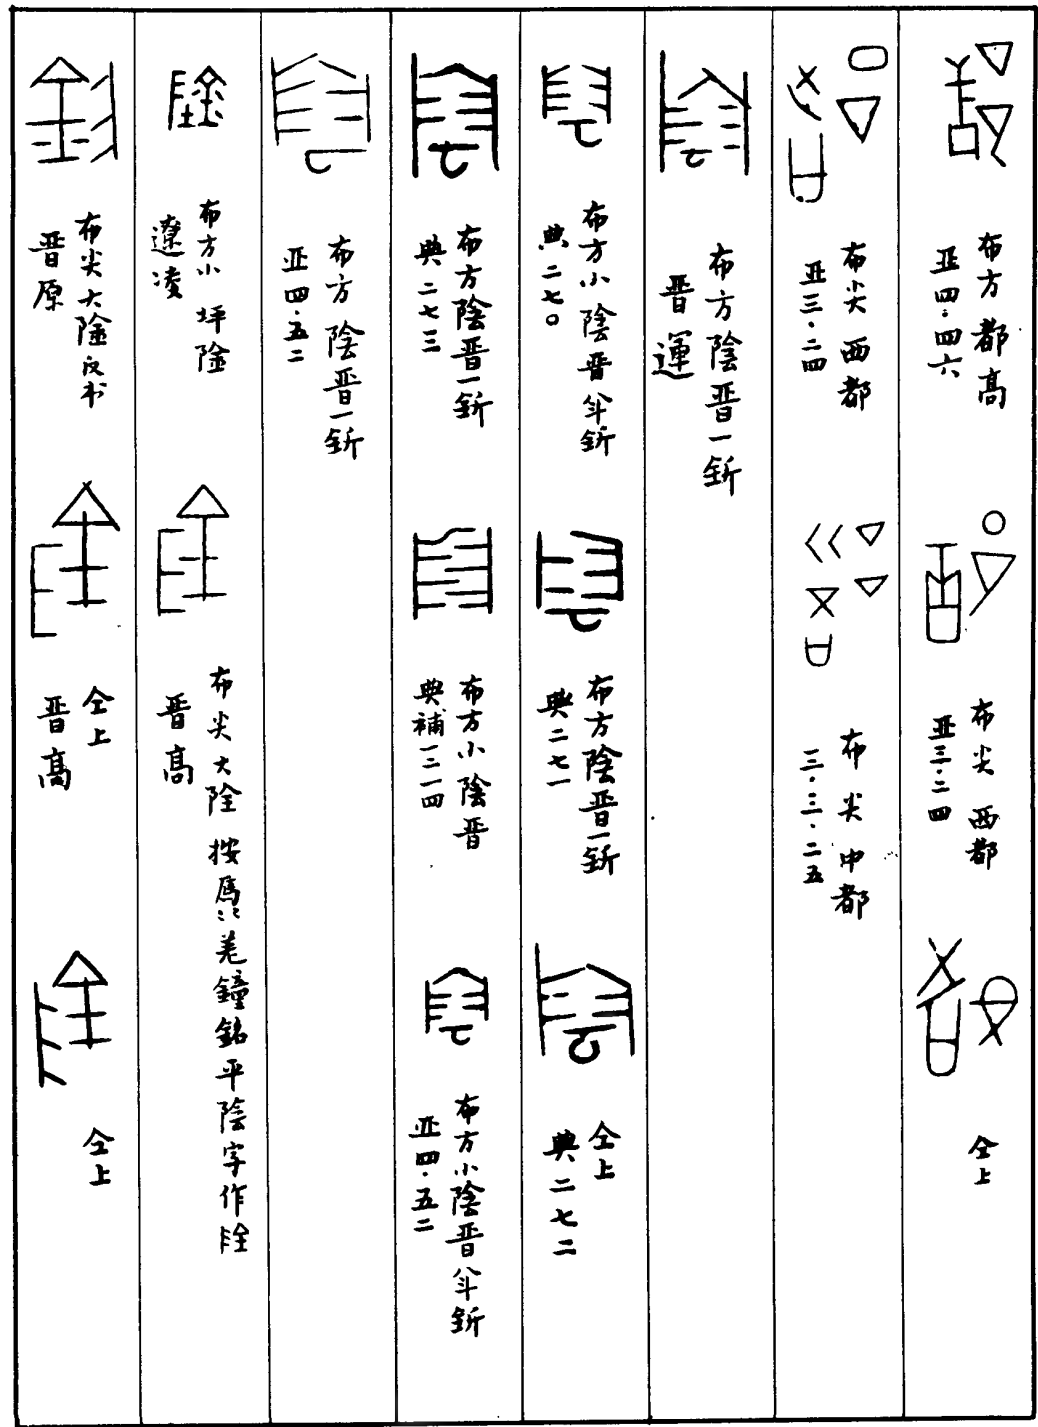 布方都高
亚四·四六
布尖西都
亚三·二四
仝上
布尖西都
亚三·二四
布尖中都
三·三·二五
布方陰晋一釿
晋運
布方小陰晋半釿
典二七〇
布方陰晋一釿
典二七一
仝上
典二七二
布方陰晋一釿
典二七三
布方小陰晋
典補一三一四
布方小陰晋半釿
亚四·五二
布方陰晋一釿
亚四·五二
布方小坪陰
遼凌
布尖大陰 按䣄羌鐘銘平陰字作
晋高
布尖大陰反书
晋原
仝上
晋高
仝上